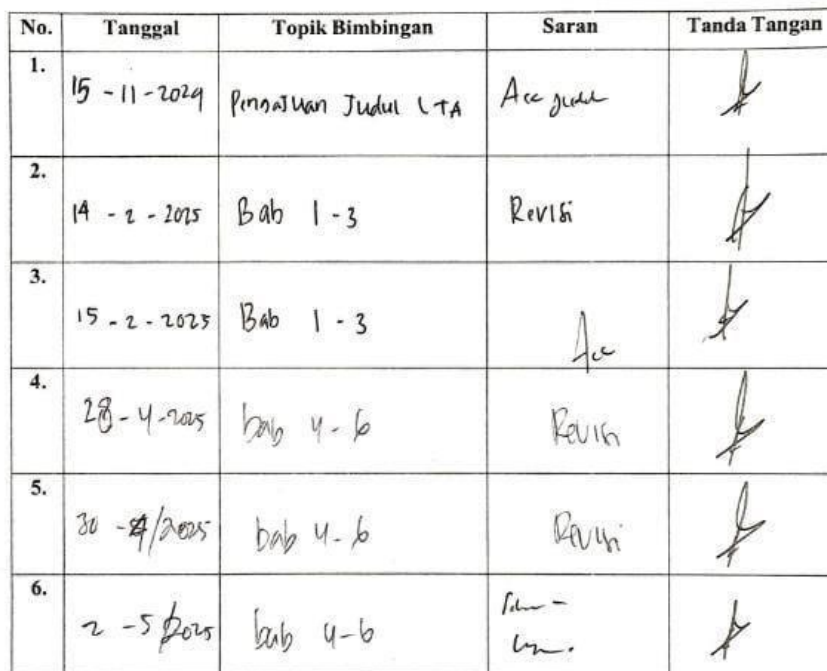 No. Tanggal Topik Bimbingan Saran Tanda Tangan
1. 15 - 11 - 2024 Pengajuan Judul LTA Acc judul
2. 14 - 2 - 2025 Bab 1 - 3 Revisi
3. 15 - 2 - 2025 Bab 1 - 3 Acc
4. 28 - 4 - 2025 bab 4 - 6 Revisi
5. 30 - 4/2025 bab 4 - 6 Revisi
6. 2 - 5 2025 bab 4 - 6